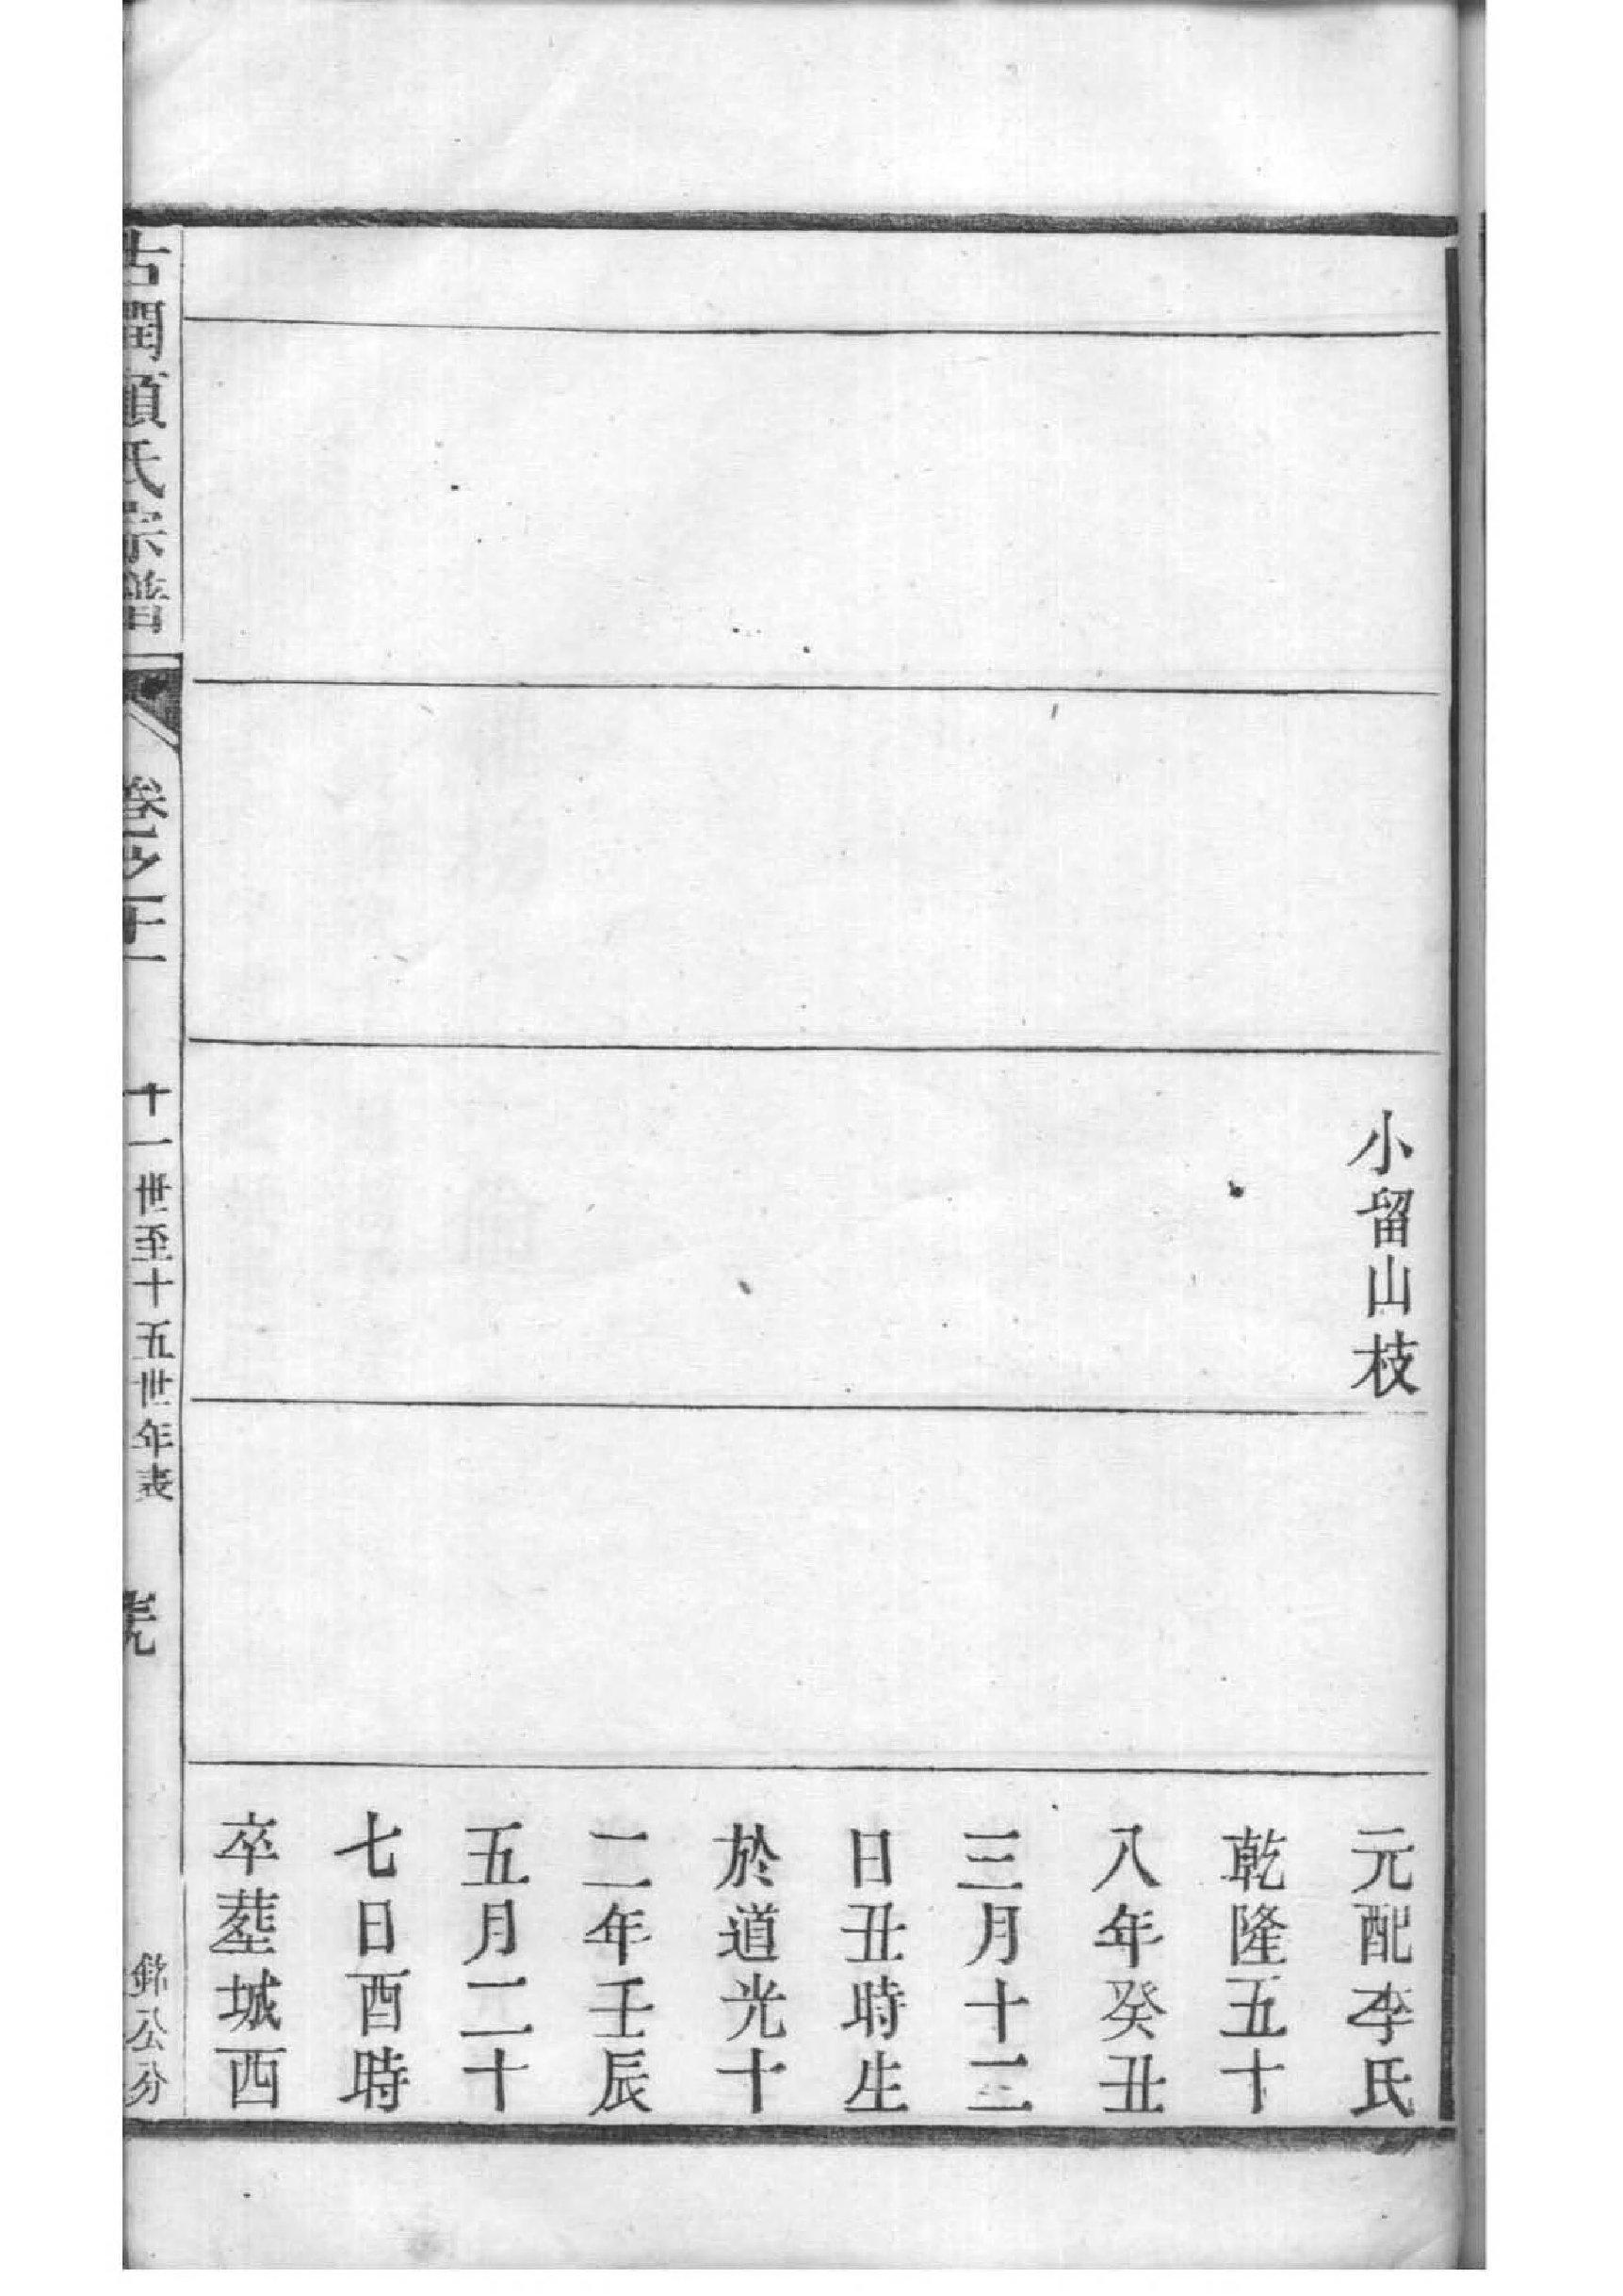 小畱山枝
元配李氏
乾隆五十
八年癸丑
三月十三
日丑時生
於道光十
二年壬辰
五月二十
七日酉時
卒塟城西
古潤顧氏宗譜
卷之十一
十一世至十五世年表
銘公分